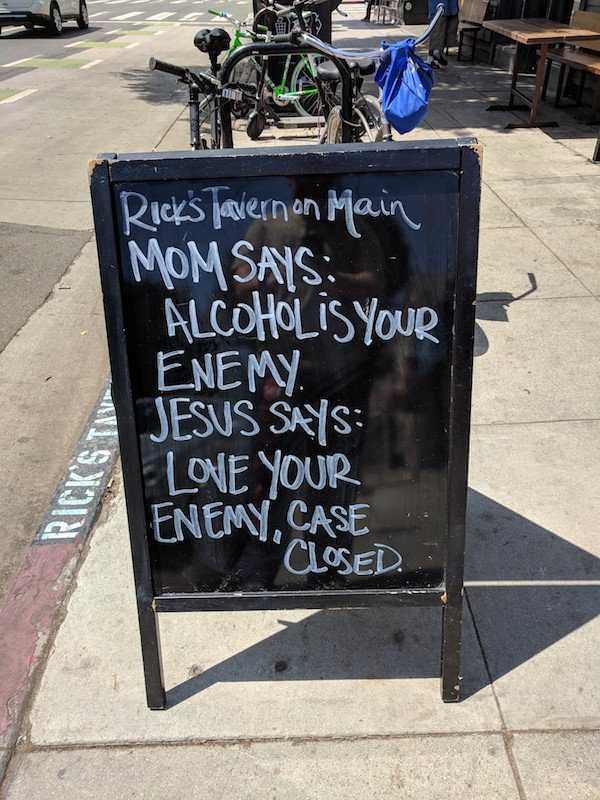 Rick's Tavern on Main
MOM SAYS:
ALCOHOL iS YOUR
ENEMY.
JESUS SAYS:
LOVE YOUR
ENEMY, CASE
CLOSED.
RICK'S